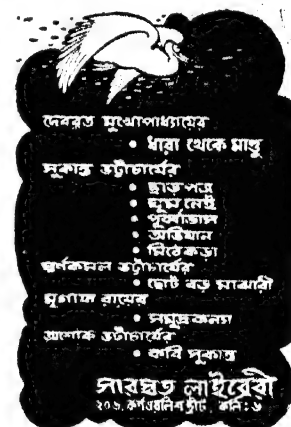 দেবব্রত মুখোপাধ্যায়ের
• ধারা থেকে মাণ্ডু
সুকান্ত ভট্টাচার্যের
• ছাড়পত্র
• ঘুম নেই
• পূর্বাভাস
• অভিযান
• মিঠেকড়া
স্বর্ণকমল ভট্টাচার্যের
• ছোট বড় মাঝারী
মৃণাল রায়ের
• সমুদ্রকন্যা
অশোক ভট্টাচার্যের
• কবি সুকান্ত
সারস্বত লাইব্রেরী
২০৬, কর্ণওয়ালিশ স্ট্রীট, কলি: ৬